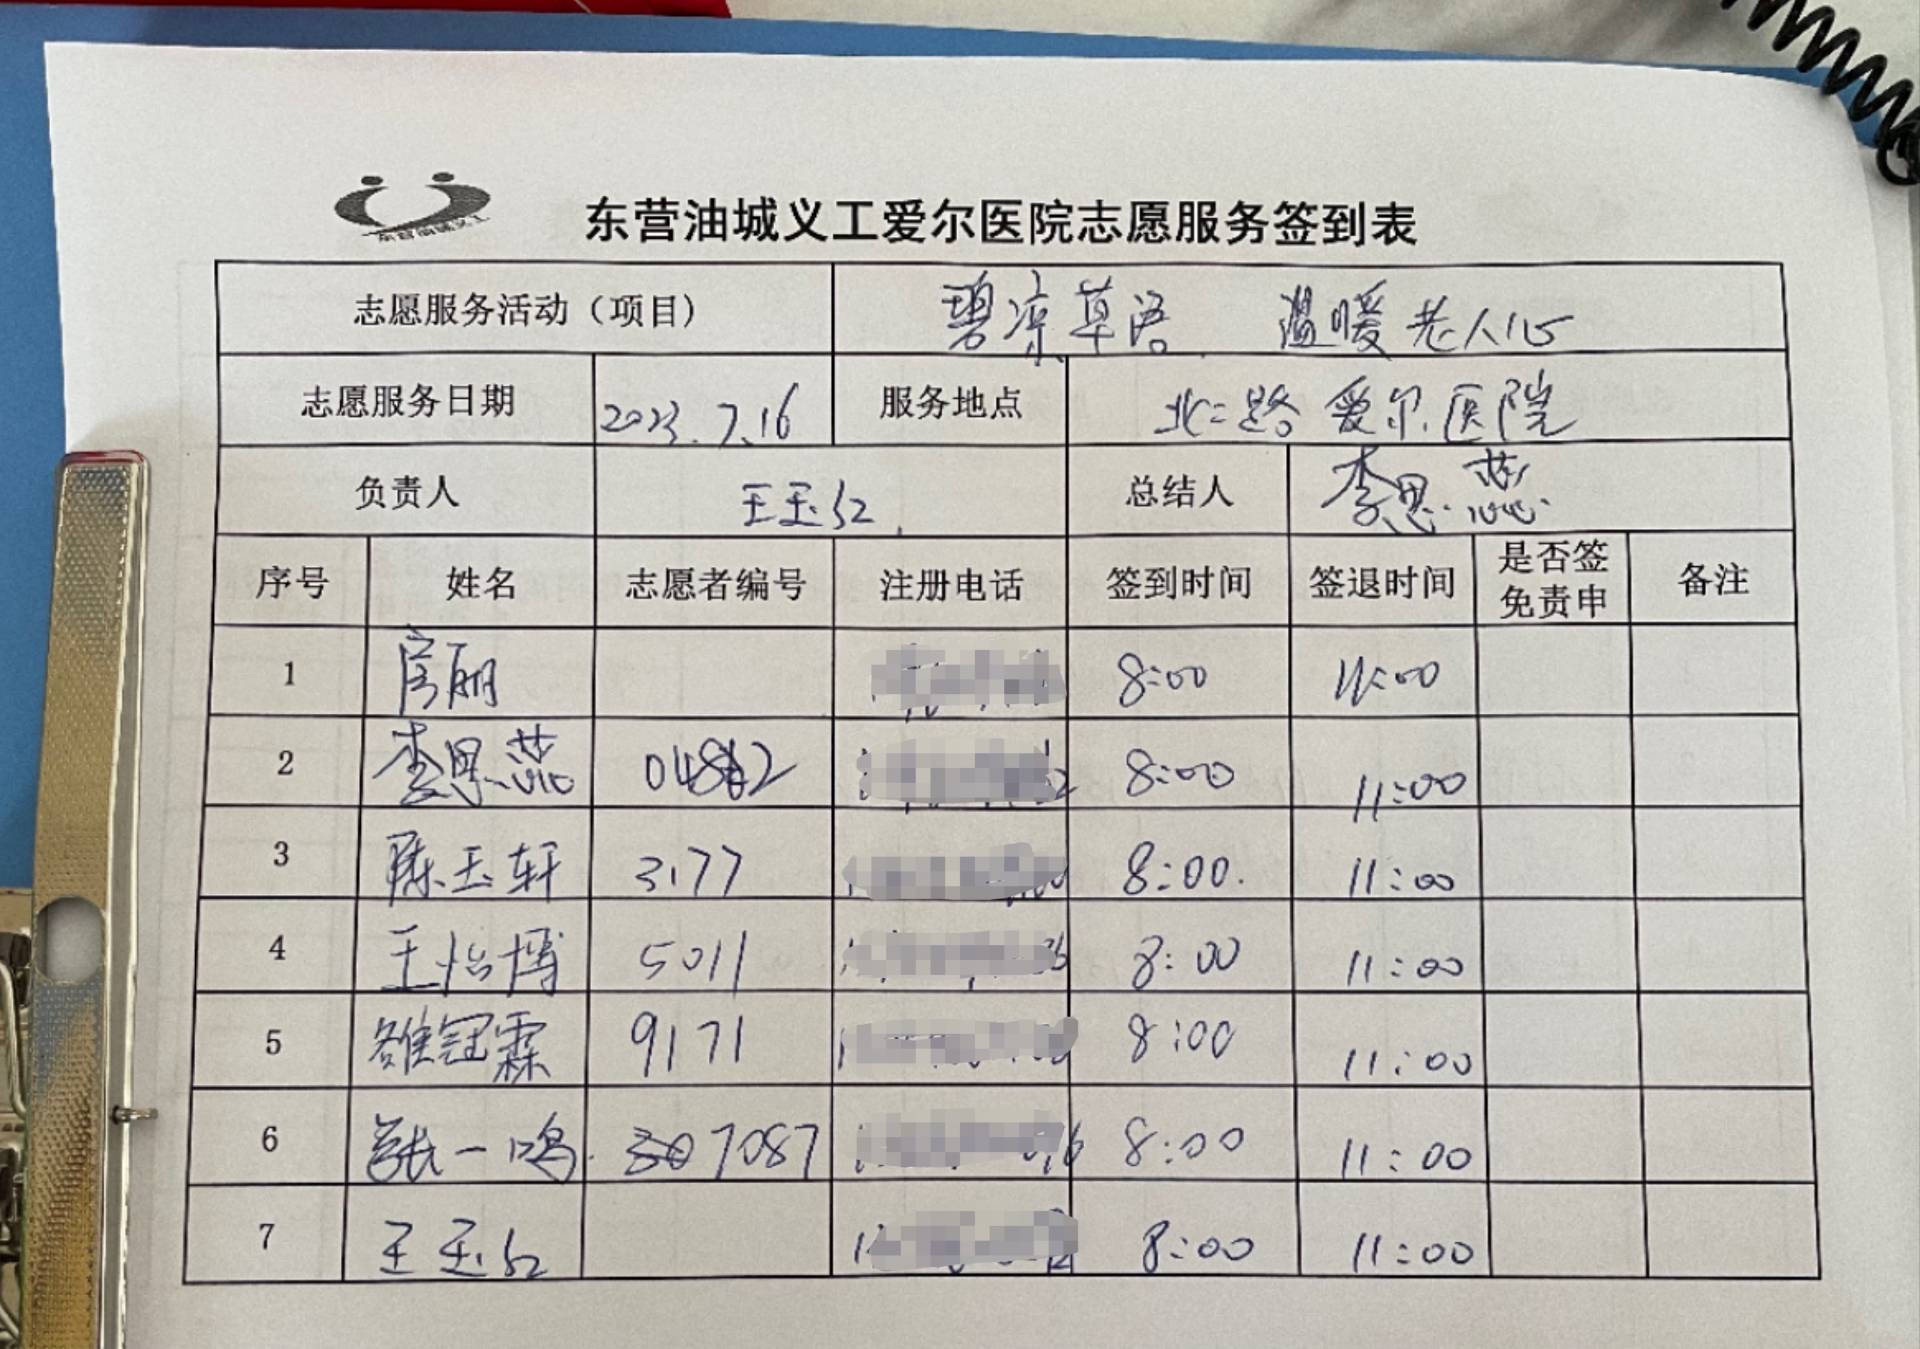 东营油城义工
东营油城义工爱尔医院志愿服务签到表
志愿服务活动（项目） 碧凉草语 温暖老人心
志愿服务日期 2023.7.16 服务地点 北二路爱尔医院
负责人 王玉红 总结人 李思蕊
序号 姓名 志愿者编号 注册电话 签到时间 签退时间 是否签免责申 备注
1 房丽 8:00 11:00
2 李思蕊 8:00 11:00
3 陈玉轩 3177 8:00 11:00
4 王怡博 5011 8:00 11:00
5 雒冠霖 9171 8:00 11:00
6 张一鸣 7087 8:00 11:00
7 王玉红 8:00 11:00